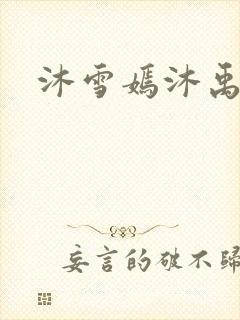 沐雪嫣沐禹
妄言的破不歸